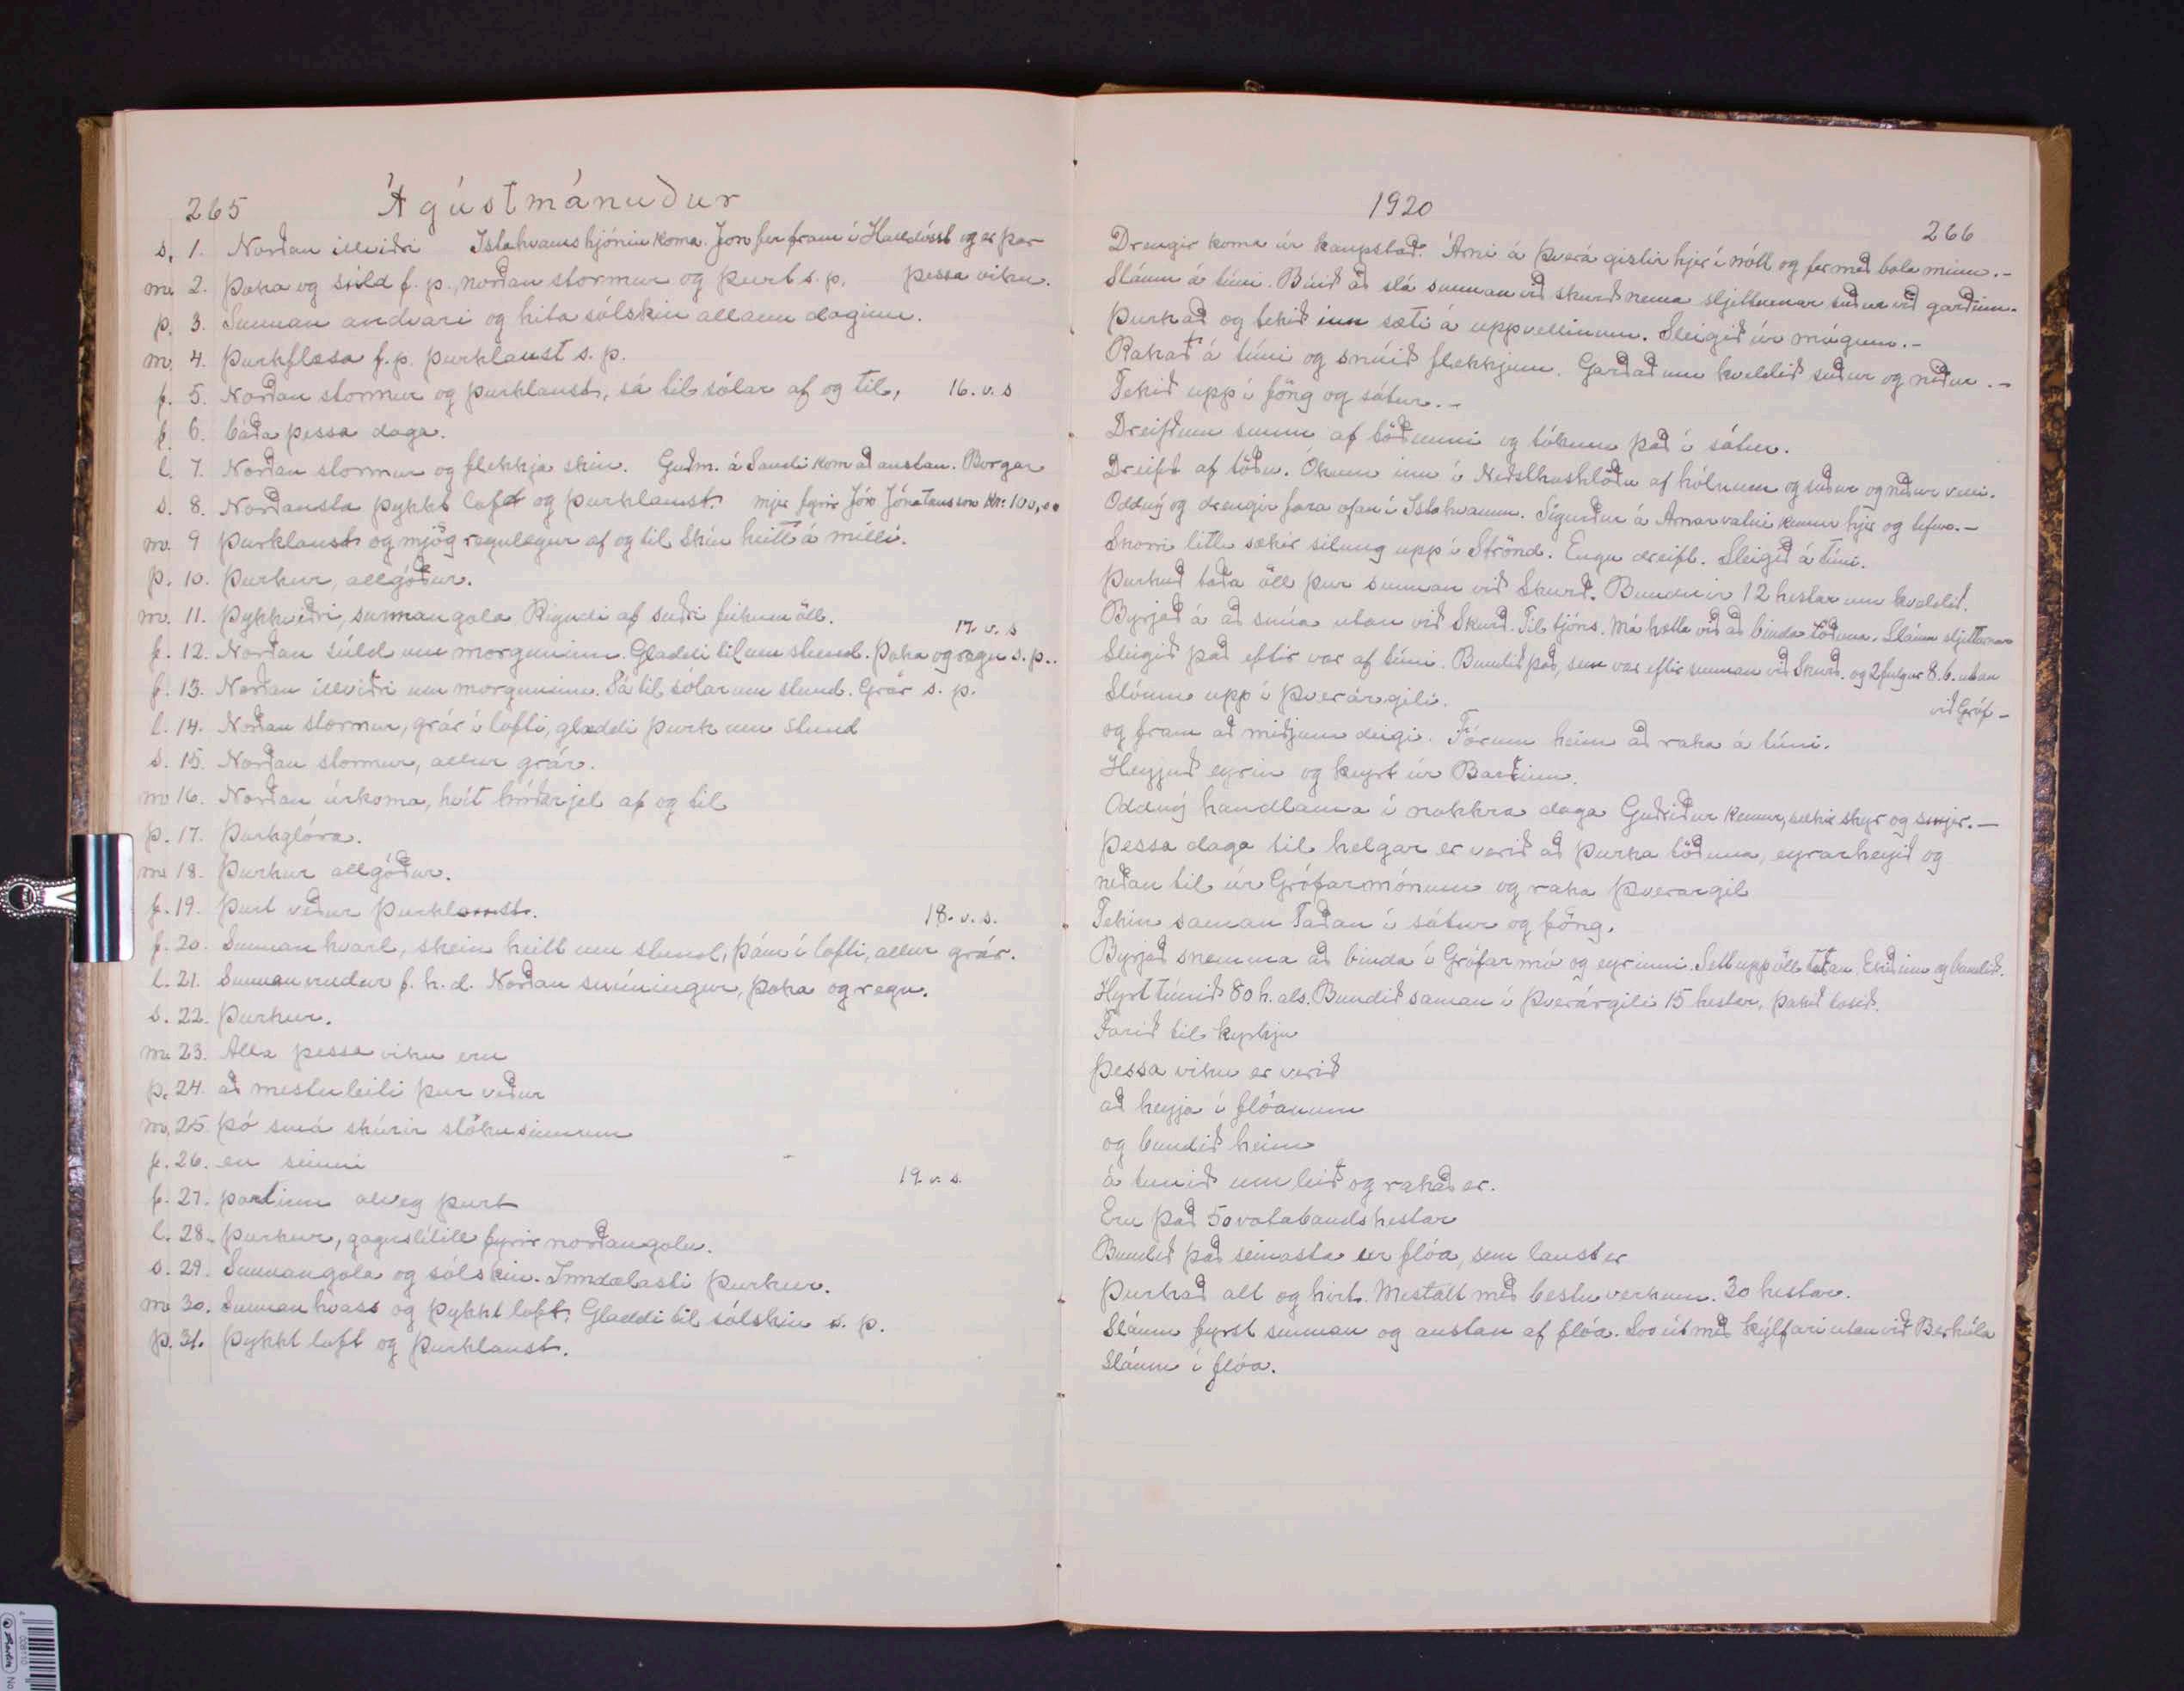 265 Ágústmánuður
s. 1. Norðan illviðri Ístahvamshjónin koma. Jón fer fram í Halldósst og er þar
má 2. Þoka og súld f. p., norðan stormur og þurt s. p. þessa viku.
þ. 3. Sunnan andvari og hita sólskin allann daginn.
m. 4. Þurkflæsa f. p. þurklaust s. p.
f. 5. Norðan stormur og þurklaust, sá til sólar af og til, 16. v. s
f. 6. báða þessa daga.
l. 7. Norðan stormur og flekkja skin. Guðm. á Sandi kom að austan. Borgar
s. 8. Norðansta þykkt loft og þurklaust. mjer fyrir Jón Jónatansson Kr: 100,00
má. 9 Þurklaust og mjög regnlegur af og til Skín heitt á milli.
þ. 10. Þurkur, allgóður.
m. 11. Þykkviðri, sunnangola Rigndi af suðri feiknum öll.
f. 12. Norðan súld um morguninn. Gladdi til um stund. Þoka og regn s. p.. 17. v. s
f. 13. Norðan illviðri um morguninn. Sá til sólar um stund. Grár s. p.
l. 14. Norðan stormur, grár í lofti, glæddi þurk um stund
s. 15. Norðan stormur, allur grár.
má 16. Norðan úrkoma, hvít hríðarjel af og til
þ. 17. Þurkglóra.
m 18. Þurkur allgóður.
f. 19. Þurt veður þurklaust. 18. v. s.
f. 20. Sunnan hvast, skein heitt um stund, þám í lofti, allur grár.
l. 21. Sunnan vindur f. h. d. Norðan svíningur, þoka og regn.
s. 22. Þurkur.
má 23. Alla þessa viku eru
þ. 24. að mestu leiti þur veður
m. 25 þó smá skúrir stöku sinnum
f. 26. en seinni
f. 27. partinn alveg þurt 19 v. s.
l. 28. Þurkur, gagnslítill fyrir norðangolu.
s. 29. Sunnangola og sólskin. Inndælasti þurkur.
má 30. Sunnan hvass og þykkt loft. Gladdi til sólskin s. p.
þ. 31. Þykkt loft og þurklaust.
1920 266
Drengir koma úr kaupstað. Árni á Þverá gistir hjer í nótt og fer með bola minn.-
Sláum á túni. Búið að slá sunnan við skurð nema sljetturnar suður við garðinn.
Þurkað og tekið inn sæti á uppvellinum. Sleigið úr múgum.-
Rakað á túni og snúið flekkjum. Garðað um kveldið suður og niður.-
Tekið upp í föng og sátur.-
Dreifðum sumu af töðunni og tókum það í sátur.
Dreift af töðu. Ókum inn í Neðslhushlöðu af hólnum og suður og niður velli.
Oddný og drengir fara ofan í Ístahvamm. Sigurður á Arnarvatni kemur hjer og tefur.-
Snorri litli sækir silung upp í Strönd. Engu dreift. Sleigið á túni.
Þurkuð taða öll þur sunnan við Skurð. Bundnir 12 hestar um kveldið.
Byrjað á að snúa utan við Skurð. Til tjóns. Má hætta við að binda töðuna. Sláum sljetturnar
Sleigið það eftir var af túni. Bundið það, sem var eftir sunnan við Skurð. og 2 fulgur 8. b. utan
við Gróf-
Slóum upp í Þverárgili.
og fram að miðjum deigi. Fórum heim að raka á túni.
Heyjuð eyrin og keyrt úr Barðinu.
Oddný handlama í nokkra daga Guðríður kemur, sækir skyr og smjer.—
Þessa daga til helgar er verið að þurka töðuna, eyrarheyið og
neðan til úr Grófarmónum og raka Þverárgil
Tekin saman Taðan í sátur og föng.
Byrjað snemma að binda í Grófarmó og eyrinni. Sett upp öll taðan. Ekið inn og bundið.
Hyrt túnið 80 h. als. Bundið saman í Þverárgili 15 hestar, þakið losið.
Farið til kyrkju
Þessa viku er verið
að heyja í flóanum
og bundið heim
á túnið um leið og rakað er.
Eru það 50 votabandshestar
Bundið það seinasta úr flóa, sem laust er
Þurkað alt og hirt. Mestalt með bestu verkun. 30 hestar.
Sláum fyrst sunnan og austan af flóa. Svo út með kýlfari utan við Berhúla
Sláum í flóa.